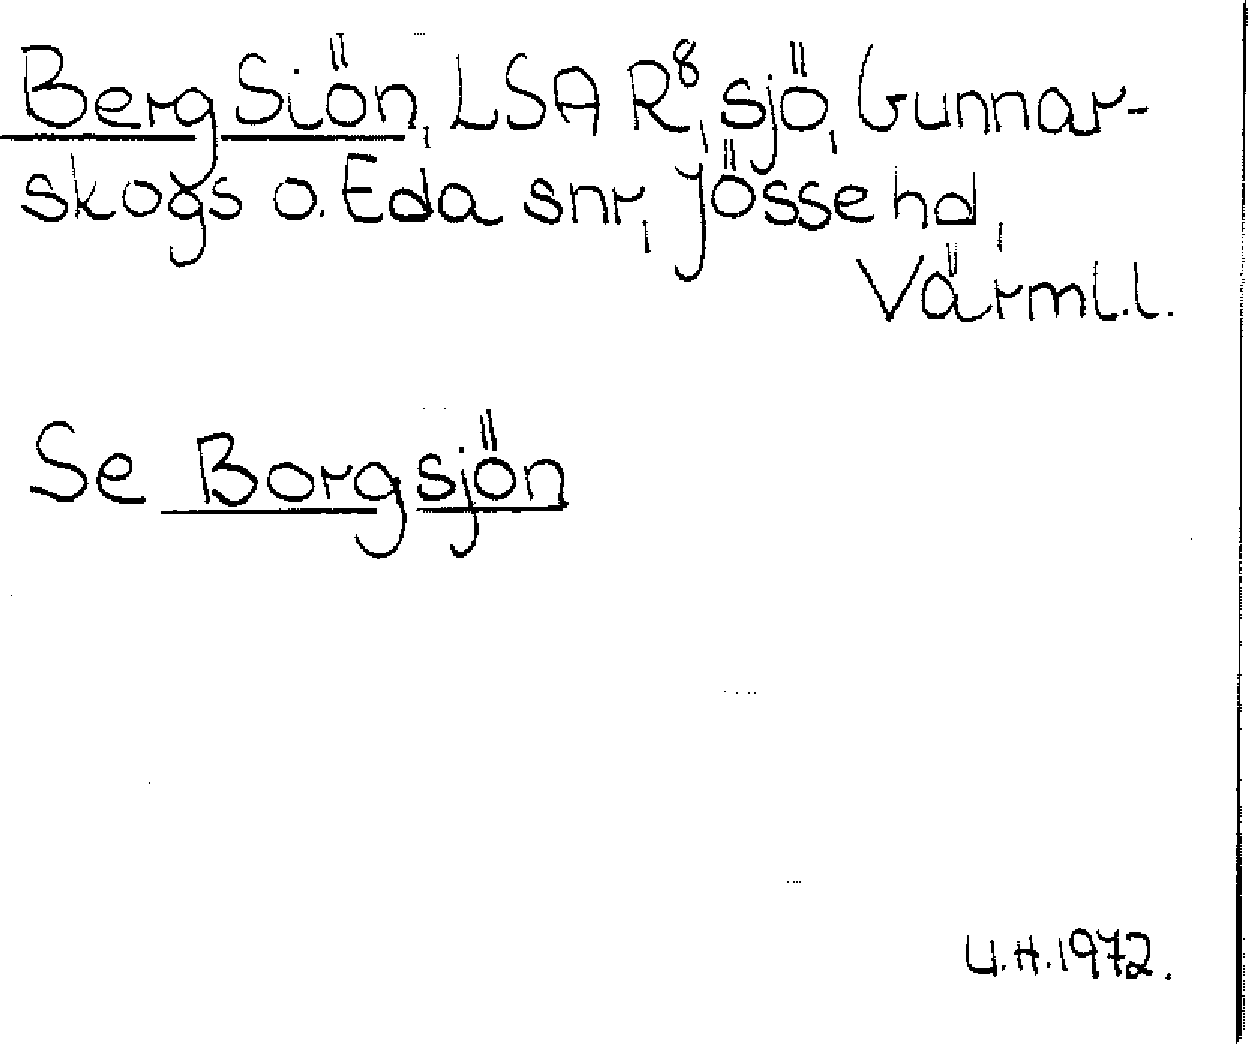 Berg Siön, LSA R⁸, sjö, Gunnar-
skogs o. Eda snr, Jösse hd,
Värml.l.
Se Borgsjön
U.H.1972.